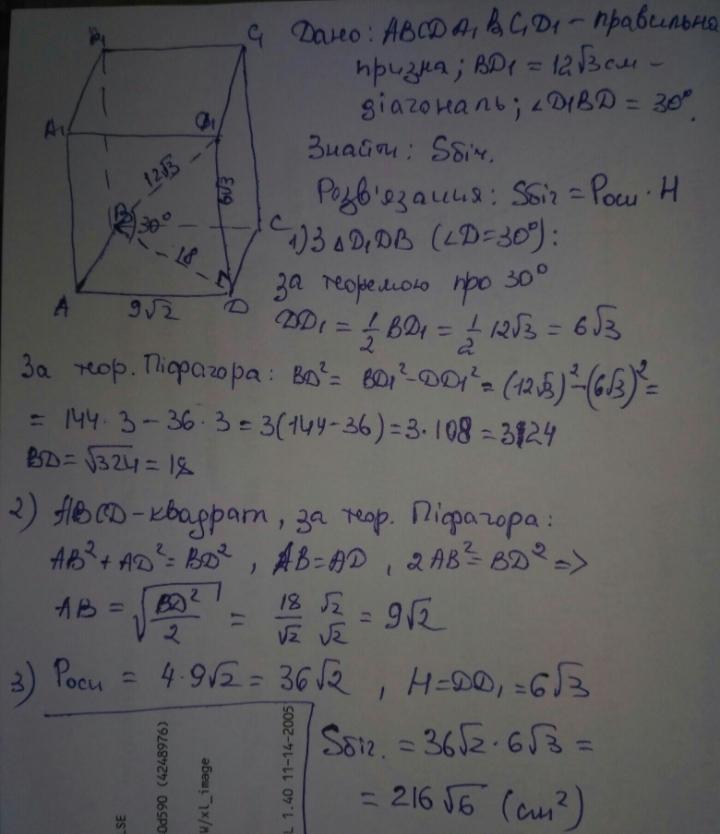 Дано: ABCDA₁B₁C₁D₁ – правильна
призма; BD₁ = 12√3 см –
діагональ; ∠D₁BD = 30°.
Знайти: Sбіч.
Розв'язання: Sбіч = Pосн · H
B₁
C₁
A₁
D₁
12√3
6√3
B
30°
C
18
A
9√2
D
1) З △D₁DB (∠D=30°):
за теоремою про 30°
DD₁ = 1/2 BD₁ = 1/2 12√3 = 6√3
За теор. Піфагора: BD² = BD₁² - DD₁² = (12√3)² - (6√3)² =
= 144 · 3 – 36 · 3 = 3(144 - 36) = 3 · 108 = 324
BD = √324 = 18
2) ABCD – квадрат, за теор. Піфагора:
AB² + AD² = BD², AB = AD, 2AB² = BD² =>
AB = √(BD²/2) = 18/√2 √2/√2 = 9√2
3) Pосн = 4 · 9√2 = 36√2, H = DD₁ = 6√3
Sбіч. = 36√2 · 6√3 =
= 216√6 (см²)
LSE
0d590 (4248976)
W/xl_image
L 1.40 11-14-2005